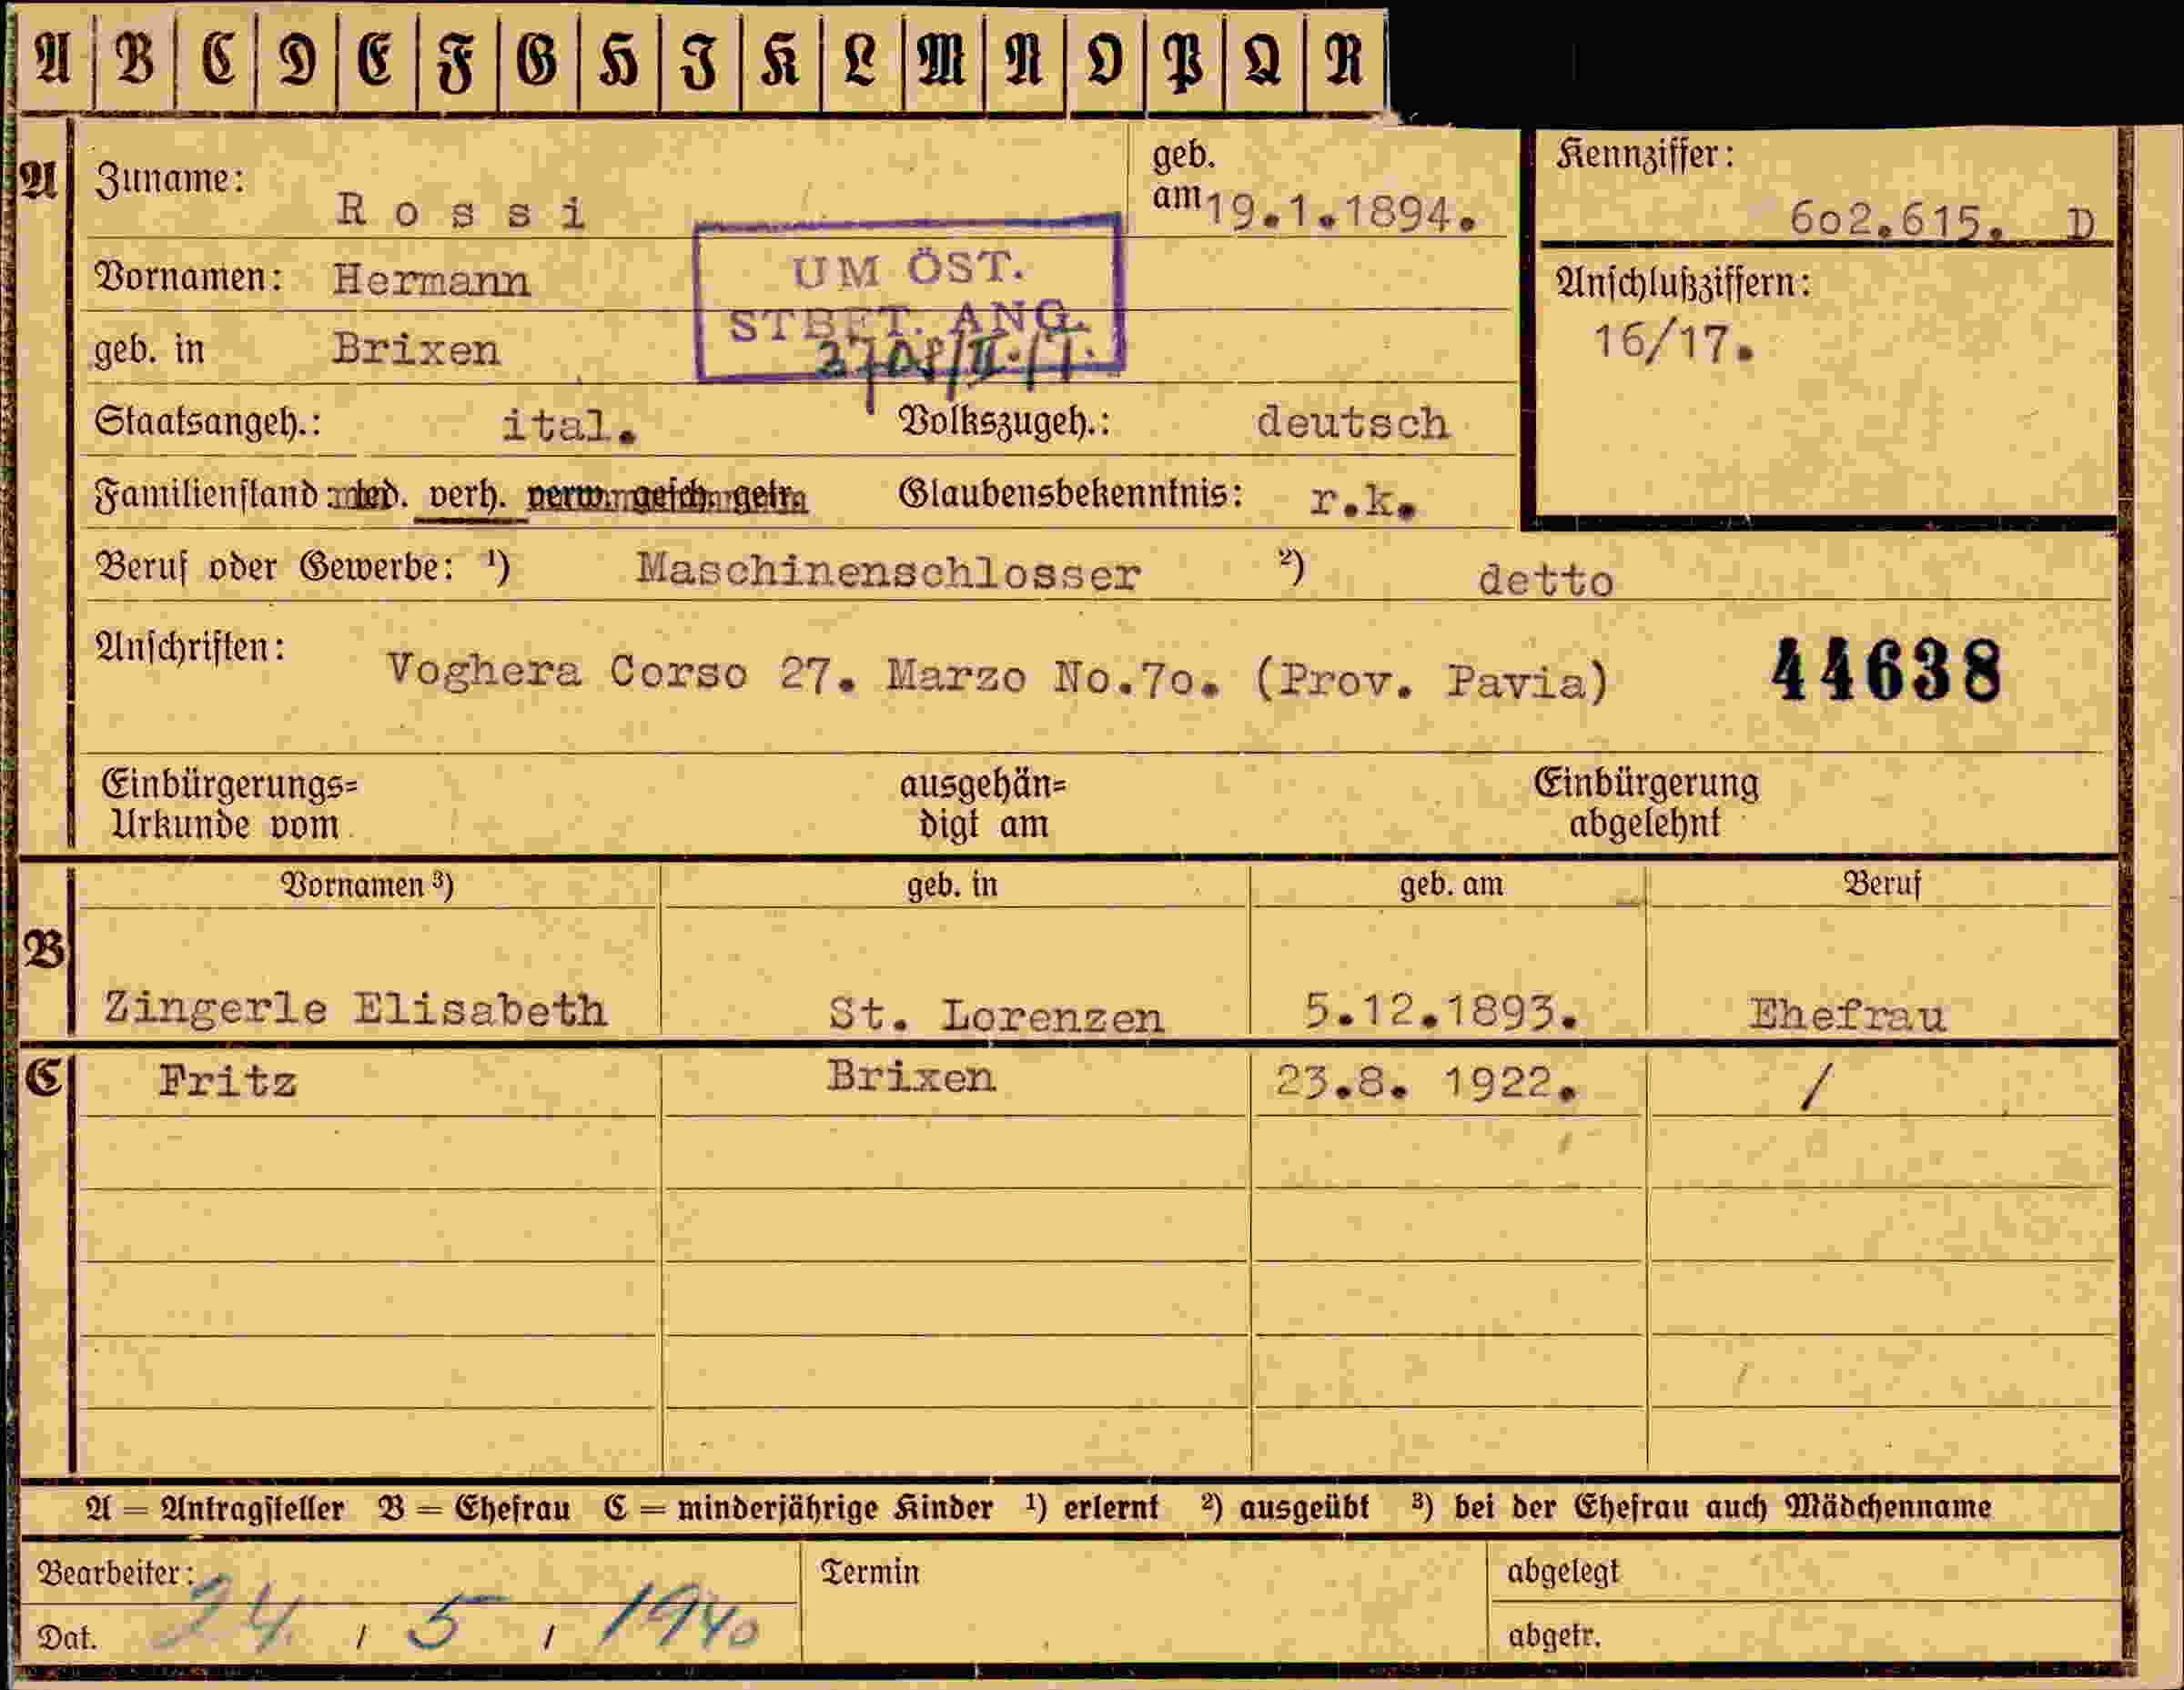 A B C D E F G H I K L M N O P Q R
A Zuname: Rossi geb. am 19.1.1894.
Kennziffer: 602.615. D
Vornamen: Hermann
UM ÖST.
STBET. ANG.
geb. in Brixen
Anschlußziffern:
16/17.
Staatsangeh.: ital. Volkszugeh.: deutsch
Familienstand: led. verh. verw. gesch. getr. Glaubensbekenntnis: r.k.
Beruf oder Gewerbe: ¹) Maschinenschlosser ²) detto
Anschriften: Voghera Corso 27. Marzo No.7o. (Prov. Pavia) 44638
Einbürgerungs= ausgehän= Einbürgerung
Urkunde vom digt am abgelehnt
Vornamen ³) geb. in geb. am Beruf
B Zingerle Elisabeth St. Lorenzen 5.12.1893. Ehefrau
C Fritz Brixen 23.8. 1922. /
A = Antragsteller B = Ehefrau C = minderjährige Kinder ¹) erlernt ²) ausgeübt ³) bei der Ehefrau auch Mädchenname
Bearbeiter: Termin abgelegt
Dat. 24 / 5 / 1940 abgetr.